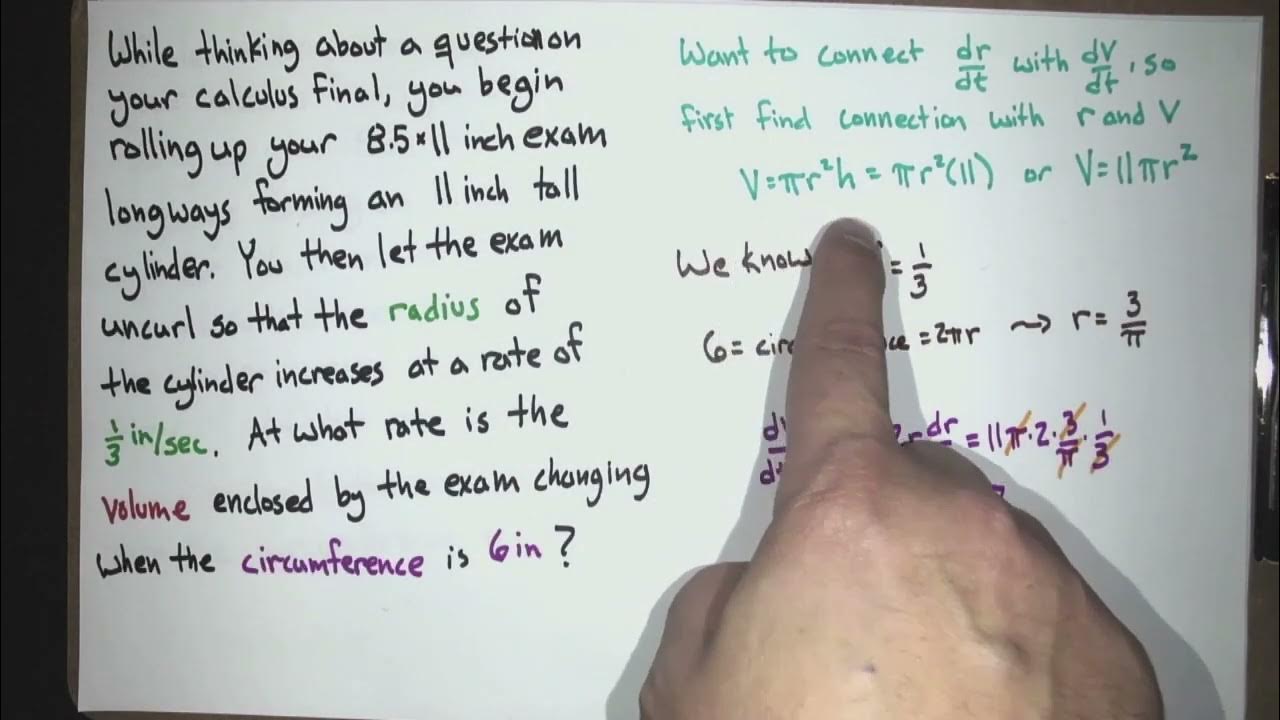 While thinking about a question on
your calculus final, you begin
rolling up your 8.5×11 inch exam
longways forming an 11 inch tall
cylinder. You then let the exam
uncurl so that the radius of
the cylinder increases at a rate of
1/3 in/sec. At what rate is the
volume enclosed by the exam changing
when the circumference is 6in?
Want to connect dr/dt with dV/dt, so
first find connection with r and V
V=πr²h = πr²(11) or V=11πr²
We know = 1/3
6= =2πr ⇝ r= 3/π
2r dr/dt = 11π·2·3/π·1/3